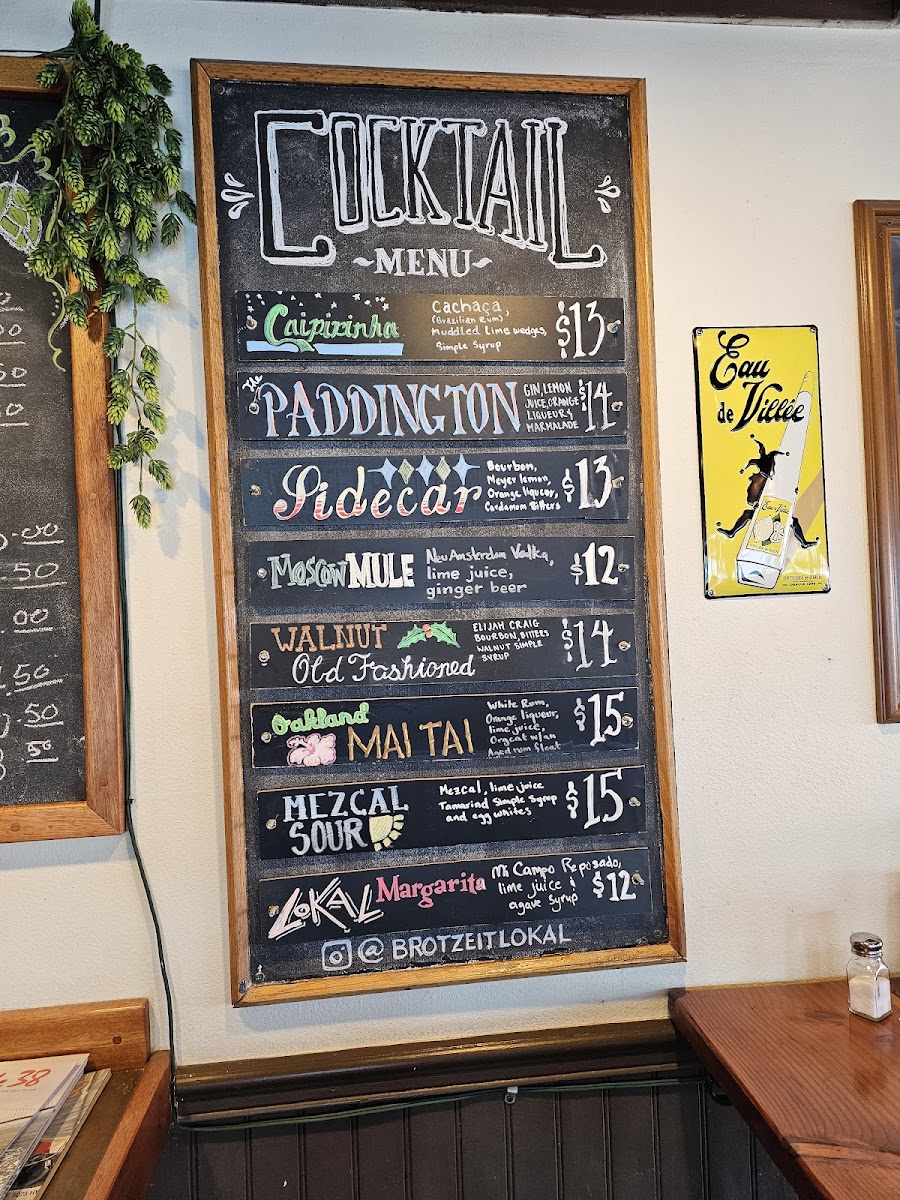 COCKTAIL
~MENU~
Caipizinha
Cachaça,
(Brazilian Rum)
Muddled Lime wedges,
Simple Syrup
$13
The
PADDINGTON
GIN, LEMON
JUICE, ORANGE
LIQUEUR &
MARMALADE
$14
Sidecar
Bourbon,
Meyer lemon,
Orange liquor,
Cardamom Bitters
$13
MOSCOW MULE
New Amsterdam Vodka,
lime juice,
ginger beer
$12
WALNUT
Old Fashioned
ELIJAH CRAIG
BOURBON, BITTERS
WALNUT SIMPLE
SYRUP
$14
Oakland
MAI TAI
White Rum,
Orange liqueur,
lime juice,
Orgeat w/an
Aged rum float
$15
MEZCAL
SOUR
Mezcal, lime juice
Tamarind Simple Syrup
and egg whites
$15
LOKAL Margarita
Mi Campo Reposado,
lime juice &
agave syrup
$12
@BROTZEITLOKAL
Eau
de Villée
.50
.00
.50
.50
.50
38